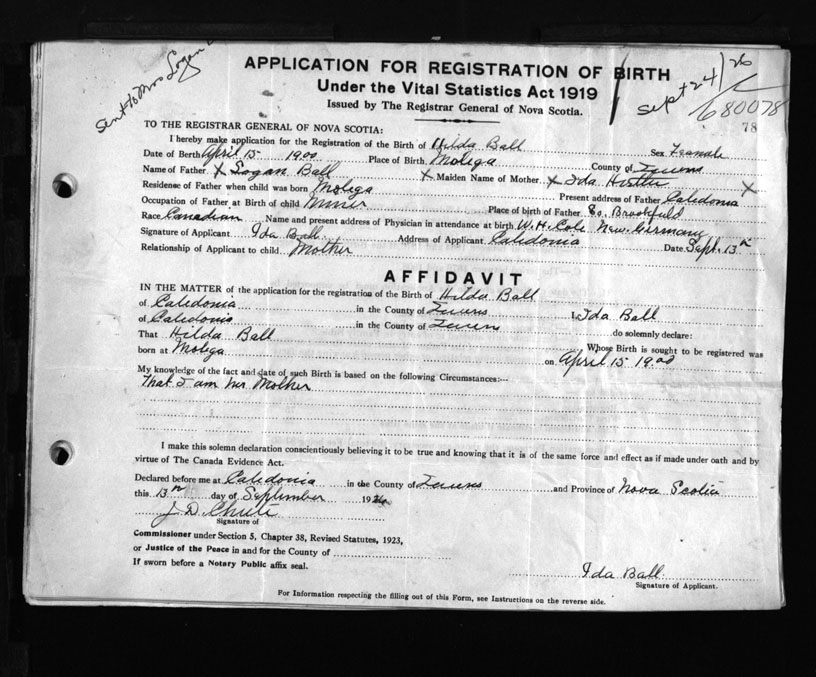 Sent to Mrs Logan
APPLICATION FOR REGISTRATION OF BIRTH
Under the Vital Statistics Act 1919
Issued by The Registrar General of Nova Scotia.
Sept 24/26
680078
78
TO THE REGISTRAR GENERAL OF NOVA SCOTIA:
I hereby make application for the Registration of the Birth of Hilda Ball Sex Female
Date of Birth April 15 1900 Place of Birth Molega County of Queens
Name of Father X Logan Ball X Maiden Name of Mother X Ida X
Residense of Father when child was born Molega Present address of Father Caledonia
Occupation of Father at Birth of child Miner Place of birth of Father So. Brookfield
Race Canadian Name and present address of Physician in attendance at birth W. H. Cole New Germany
Signature of Applicant Ida Ball Address of Applicant Caledonia Date Sept. 13th
Relationship of Applicant to child Mother
AFFIDAVIT
IN THE MATTER of the application for the registration of the Birth of Hilda Ball
of Caledonia in the County of Queens I, Ida Ball
of Caledonia in the County of Queens do solemnly declare:
That Hilda Ball Whose Birth is sought to be registered was
born at Molega on April 15 1900
My knowledge of the fact and date of such Birth is based on the following Circumstances:—
That I am her Mother
I make this solemn declaration conscientiously believing it to be true and knowing that it is of the same force and effect as if made under oath and by
virtue of The Canada Evidence Act.
Declared before me at Caledonia in the County of Queens and Province of Nova Scotia
this 13th day of September 1926
J. D. Chute
Signature of
Commissioner under Section 5, Chapter 38, Revised Statutes, 1923,
or Justice of the Peace in and for the County of
If sworn before a Notary Public affix seal.
Ida Ball
Signature of Applicant.
For Information respecting the filling out of this Form, see Instructions on the reverse side.